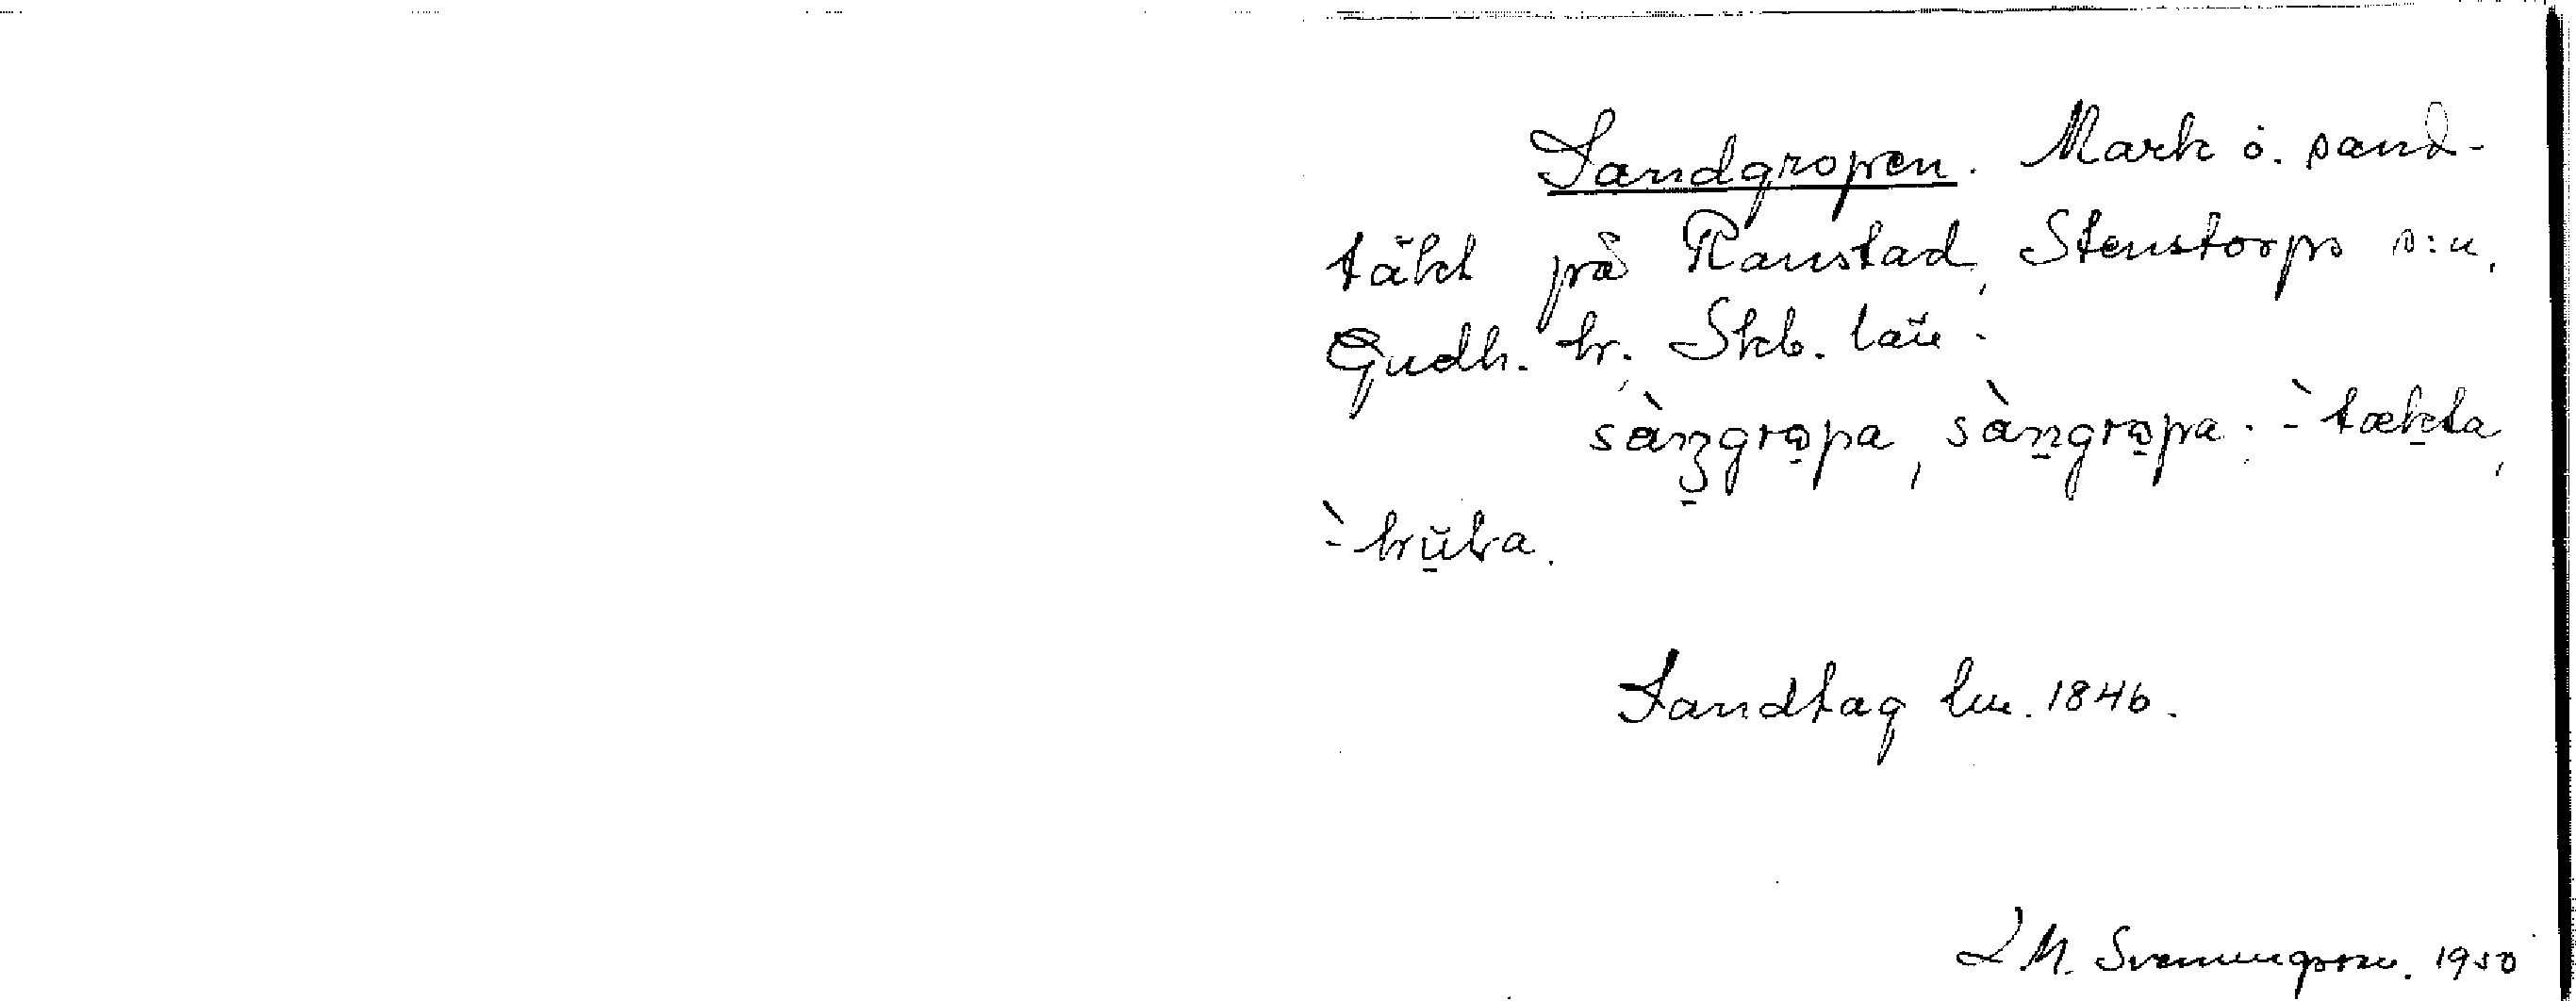 Sandgropen. Mark o. sand-
täkt på Ranstad, Stenstorps s:n,
Gudh. hr, Skb. län.
sàŋgrɷpa, sàngrɷpa. -̀tækta,
-̀kŭka.
Sandtag lm. 1846.
L M. Svenungsson. 1950